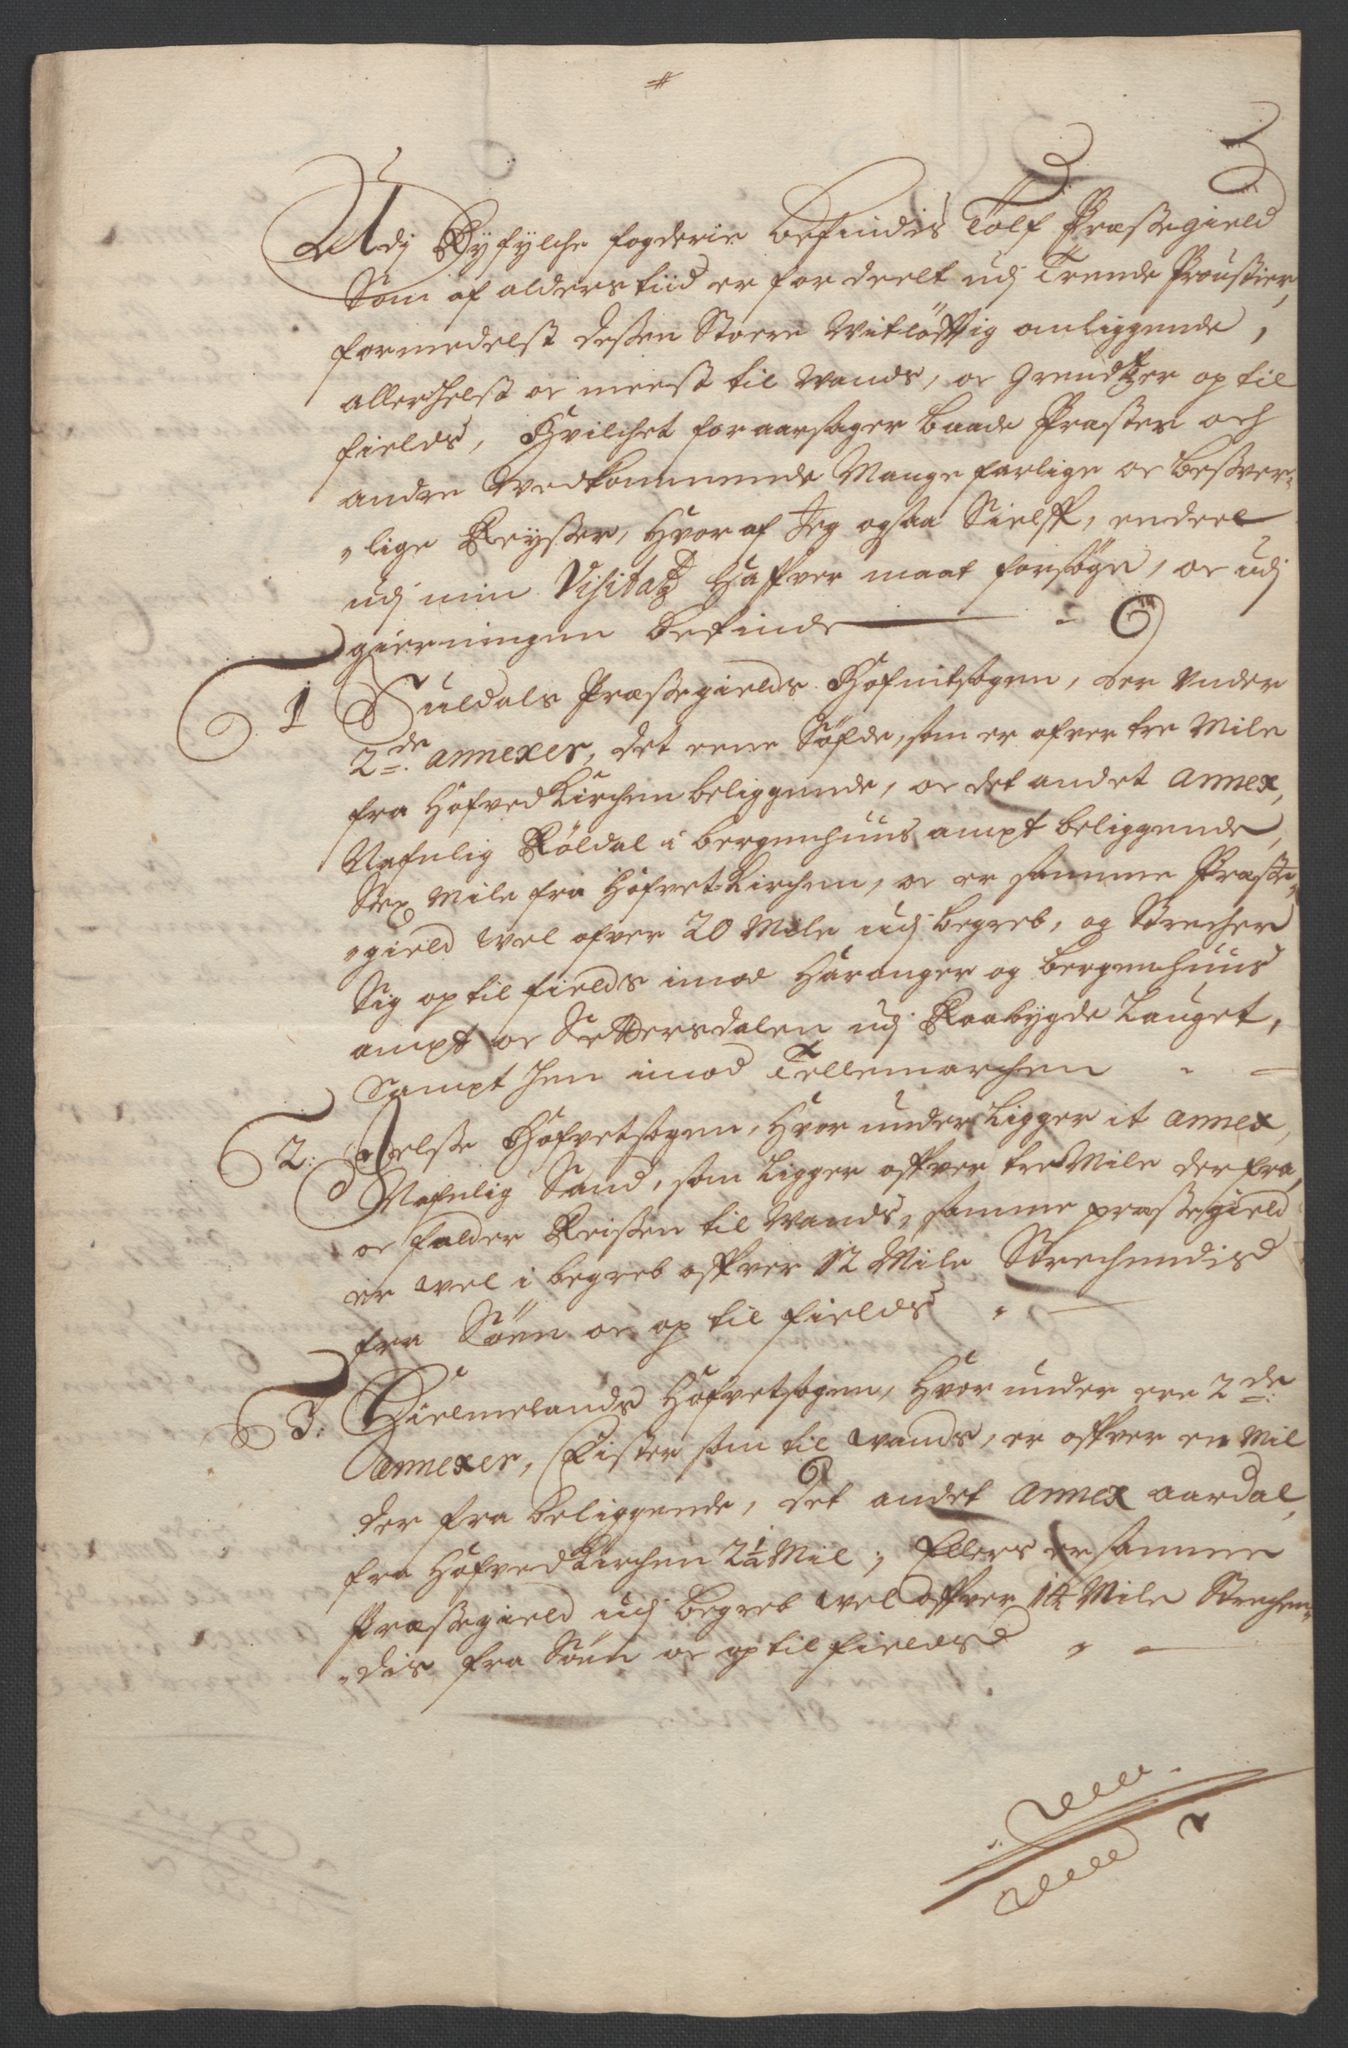 Udj Ryfylche fogderie befindis Tolf Præstegield
Som af alders tiid er for deelt udj Trende Proustier,
formedelst dessen Stoere Vitløfftig anliggende,
allerhelst oc meest til Vands, oc Grendtzer op til
fields, Hvilchet foraarsager baade Præster och
andre Vedkommende Mange farlige oc besver-
lige Reysser, Hvor af Jeg ogsaa Sielff, endeel
udj min Visitatz Haffver maat forsøge, oc udj
gierningen befinde
1 Suldals Præstegields Hofvitsogen, der Under
2de annexer, det eene Søfde, som er ofver tre Mile
fra Hofved Kirchen beliggende, oc det andet annex,
Nafnlig Röldal i bergenhuus ampt beliggende,
Sex Mile fra Hofvet-Kirchen, oc er samme Præste-
gield vel ofver 20 Mile udj begreb, og Strecher
Sig op til fields imod Haranger og bergenhuus
ampt oc Settersdalen udj Raabygde Lauget,
Sampt hen imod Tellemarchen
2: Jelse Hofvetsogen, Hvor under Ligger it annex,
Nafnlig Sand, som Ligger offver tre Mile der fra,
oc falder Reissen til Vands, samme præstegield
er vel i begreb offver 12 Mile Strechendis
fra Søen oc op til fields
3: Hielmelands Hofvetsogen, Hvor under ere 2de
Annexer, Fister som til vands, er offver en Mil
der fra beliggende, det andet annex aardal,
fra Hofved Kirchen 2½ Mil; Ellers er samme
Præstegield udj begreb vel offver 14 Mile Strechen-
dis fra Søen oc op til fields